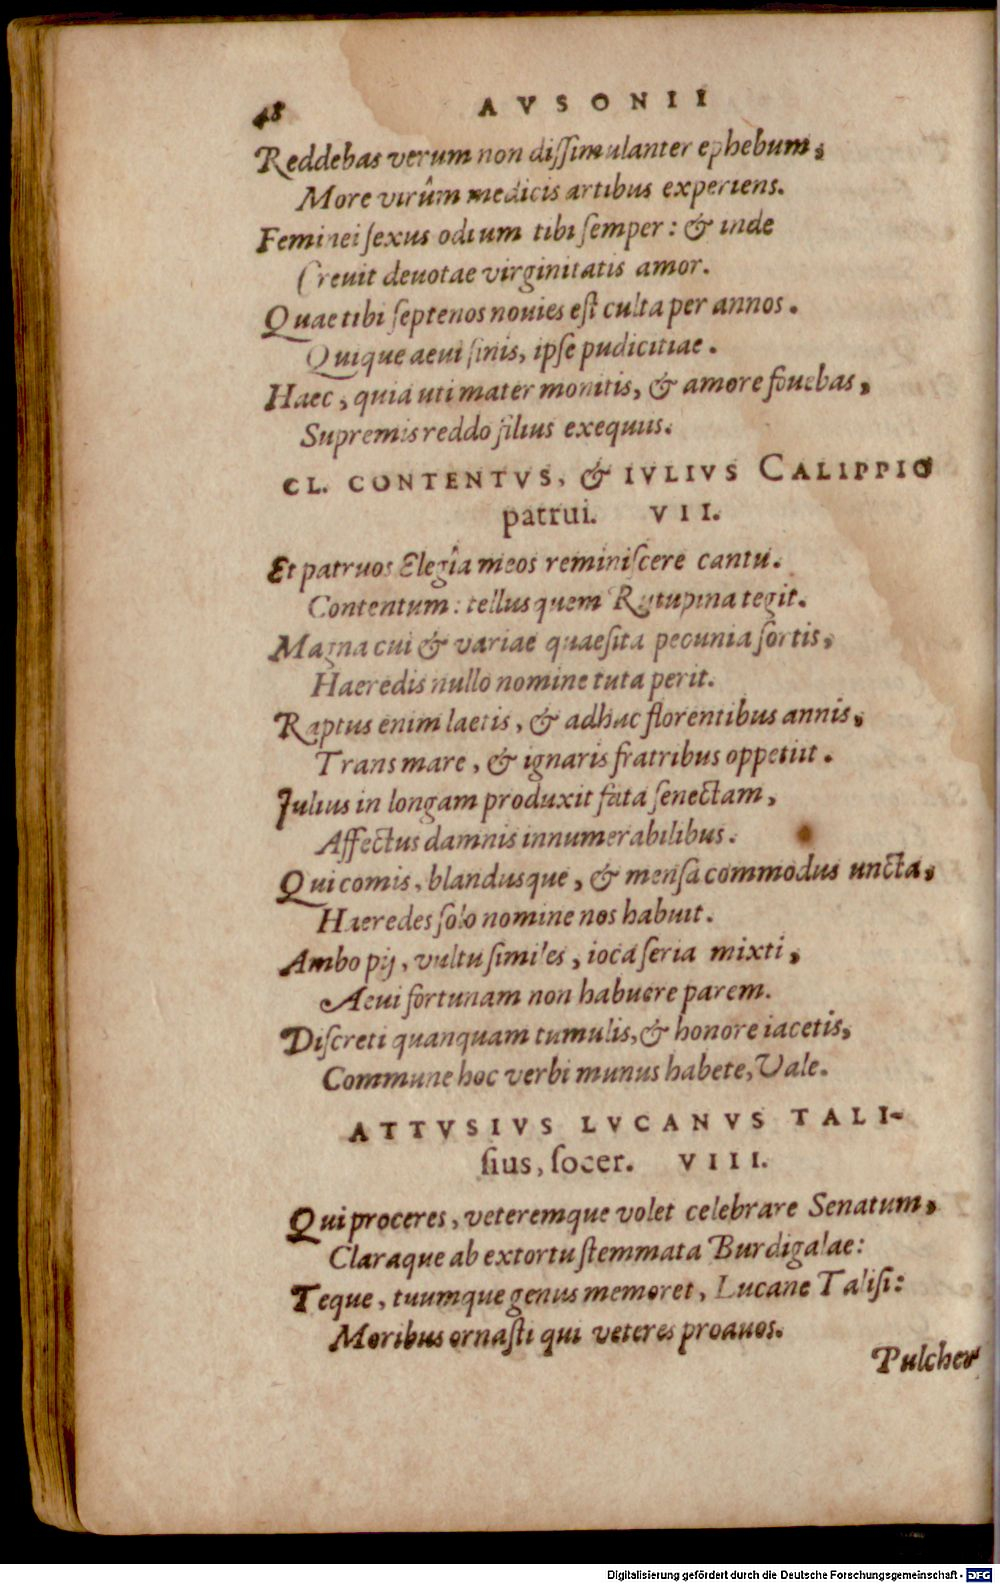 48 AVSONII
Reddebas verum non diſſimulanter ephebum,
More virûm medicis artibus experiens.
Feminei ſexus odium tibi ſemper: & inde
Creuit deuotae virginitatis amor.
Quae tibi ſeptenos nouies eſt culta per annos.
Quique aeui finis, ipſe pudicitiae.
Haec, quia uti mater monitis, & amore fouebas,
Supremis reddo filius exequiis.
CL. CONTENTVS, & IVLIVS CALIPPIO
patrui. VII.
Et patruos Elegîa meos reminiſcere cantu.
Contentum: tellus quem Rutupina tegit.
Magna cui & variae quaeſita pecunia ſortis,
Haeredis nullo nomine tuta perit.
Raptus enim laetis, & adhuc florentibus annis,
Trans mare, & ignaris fratribus oppetiit.
Julius in longam produxit fata ſenectam,
Affectus damnis innumerabilibus.
Qui comis, blandusque, & menſa commodus uncta,
Haeredes ſolo nomine nos habuit.
Ambo pij, vultu ſimiles, ioca ſeria mixti,
Aeui fortunam non habuere parem.
Diſcreti quanquam tumulis, & honore iacetis,
Commune hoc verbi munus habete, Vale.
ATTVSIVS LVCANVS TALI-
ſius, ſocer. VIII.
Qui proceres, veteremque volet celebrare Senatum,
Claraque ab extortu ſtemmata Burdigalae:
Teque, tuumque genus memoret, Lucane Taliſi:
Moribus ornaſti qui veteres proauos.
Pulcher
Digitalisierung gefördert durch die Deutsche Forschungsgemeinschaft - DFG